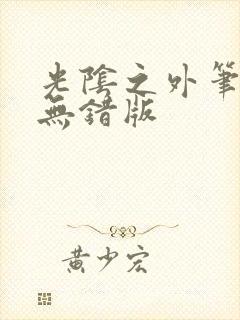 光陰之外筆
無錯版
黃少宏